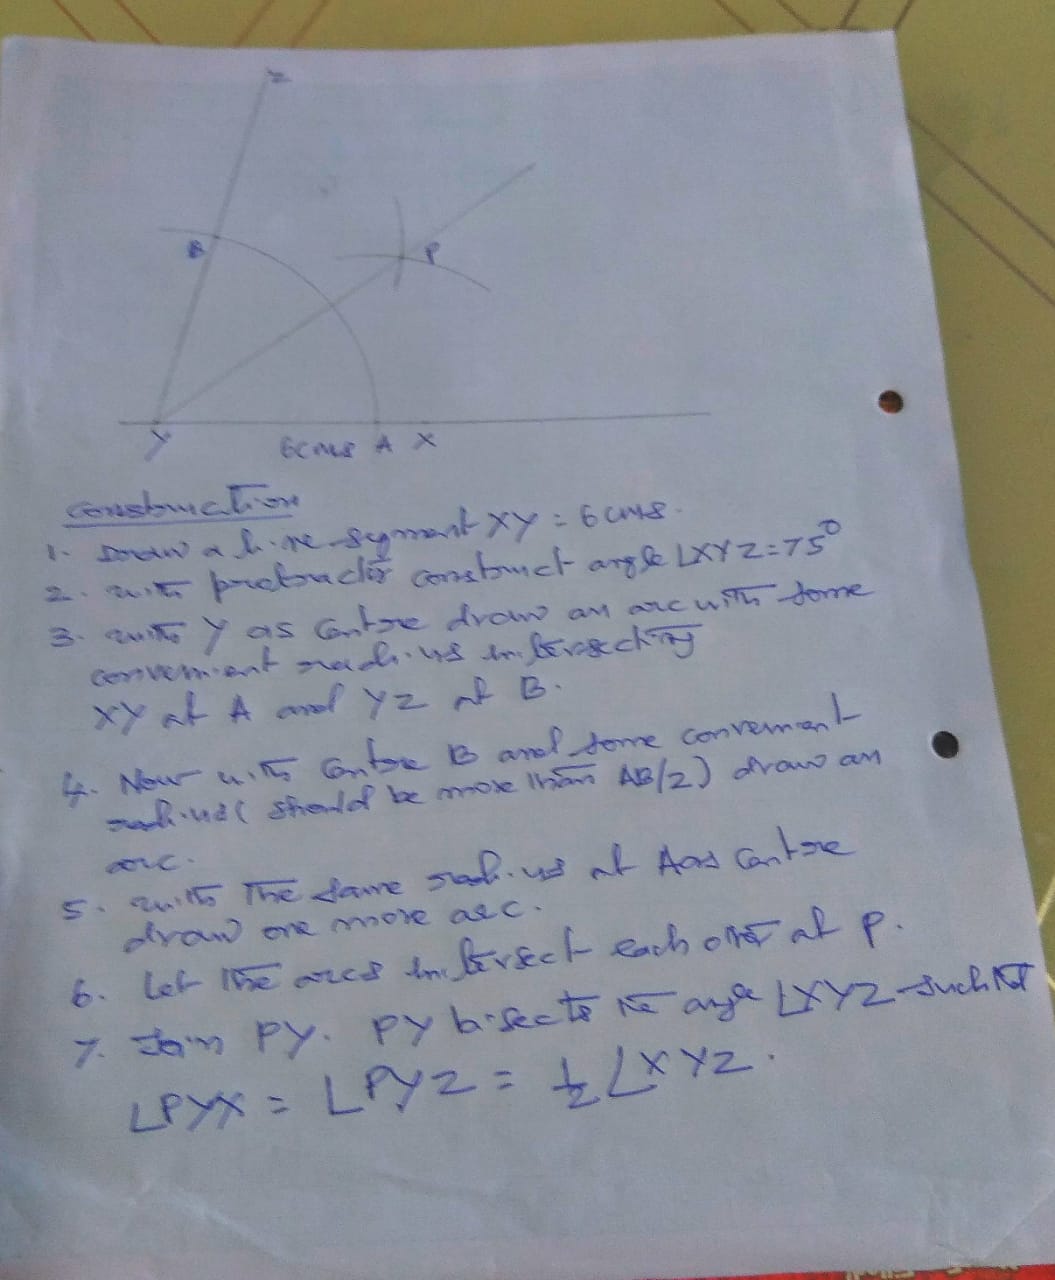 Z
B
P
Y 6cms A X
Construction
1. Draw a line segment XY = 6 cms.
2. with protractor construct angle ∠XYZ = 75°
3. with Y as Centre draw an arc with some
convenient radius intersecting
XY at A and YZ at B.
4. Now with Centre B and some convenient
radius (should be more than AB/2) draw an
arc.
5. with the same radius at A as Centre
draw one more arc.
6. Let the arcs intersect each other at P.
7. Join PY. PY bisects the angle ∠XYZ such that
∠PYX = ∠PYZ = 1/2 ∠XYZ.